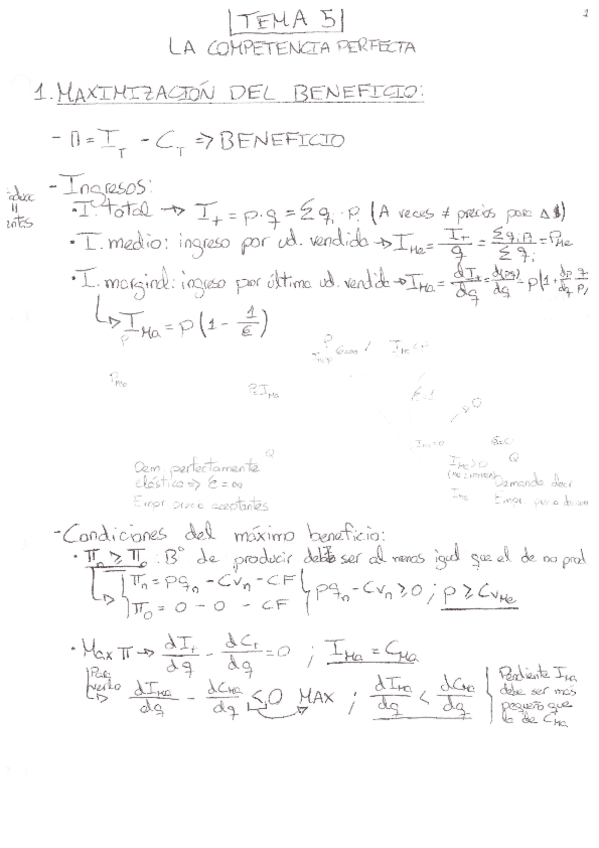 1
TEMA 5
LA COMPETENCIA PERFECTA
1. MAXIMIZACIÓN DEL BENEFICIO:
- Π = I_T - C_T => BENEFICIO
- Ingresos:
• I. total → I_t = p·q = Σ q_i · P_i (A veces ≠ precios para Δ$)
• I. medio: ingreso por ud. vendida → I_Me = I_t/q = Σ q_i P_i / Σ q_i = P_Me
• I. marginal: ingreso por última ud. vendida → I_Ma = dI_t/dq = d(pq)/dq = p(1 + dp/dq q/p)
↳ I_Ma = p(1 - 1/ε)
P_Me
P= I_Ma
Q
Q
Dem. perfectamente
elástica => ε = ∞
Empr. precio aceptantes
Demanda decr
Empr.
- Condiciones del máximo beneficio:
• Π_n ≥ Π_0 : Bº de producir debe ser al menos igual que el de no prod
Π_n = pq_n - Cv_n - CF
Π_0 = 0 - 0 - CF
pq_n - Cv_n ≥ 0 ; p ≥ Cv_Me
• Max Π → dI_t/dq - dC_t/dq = 0 ; I_Ma = C_Ma
dI_Ma/dq - dC_Ma/dq ≤ 0 MAX ; dI_Ma/dq < dC_Ma/dq
Pendiente I_Ma
debe ser más
pequeño que
la de C_Ma